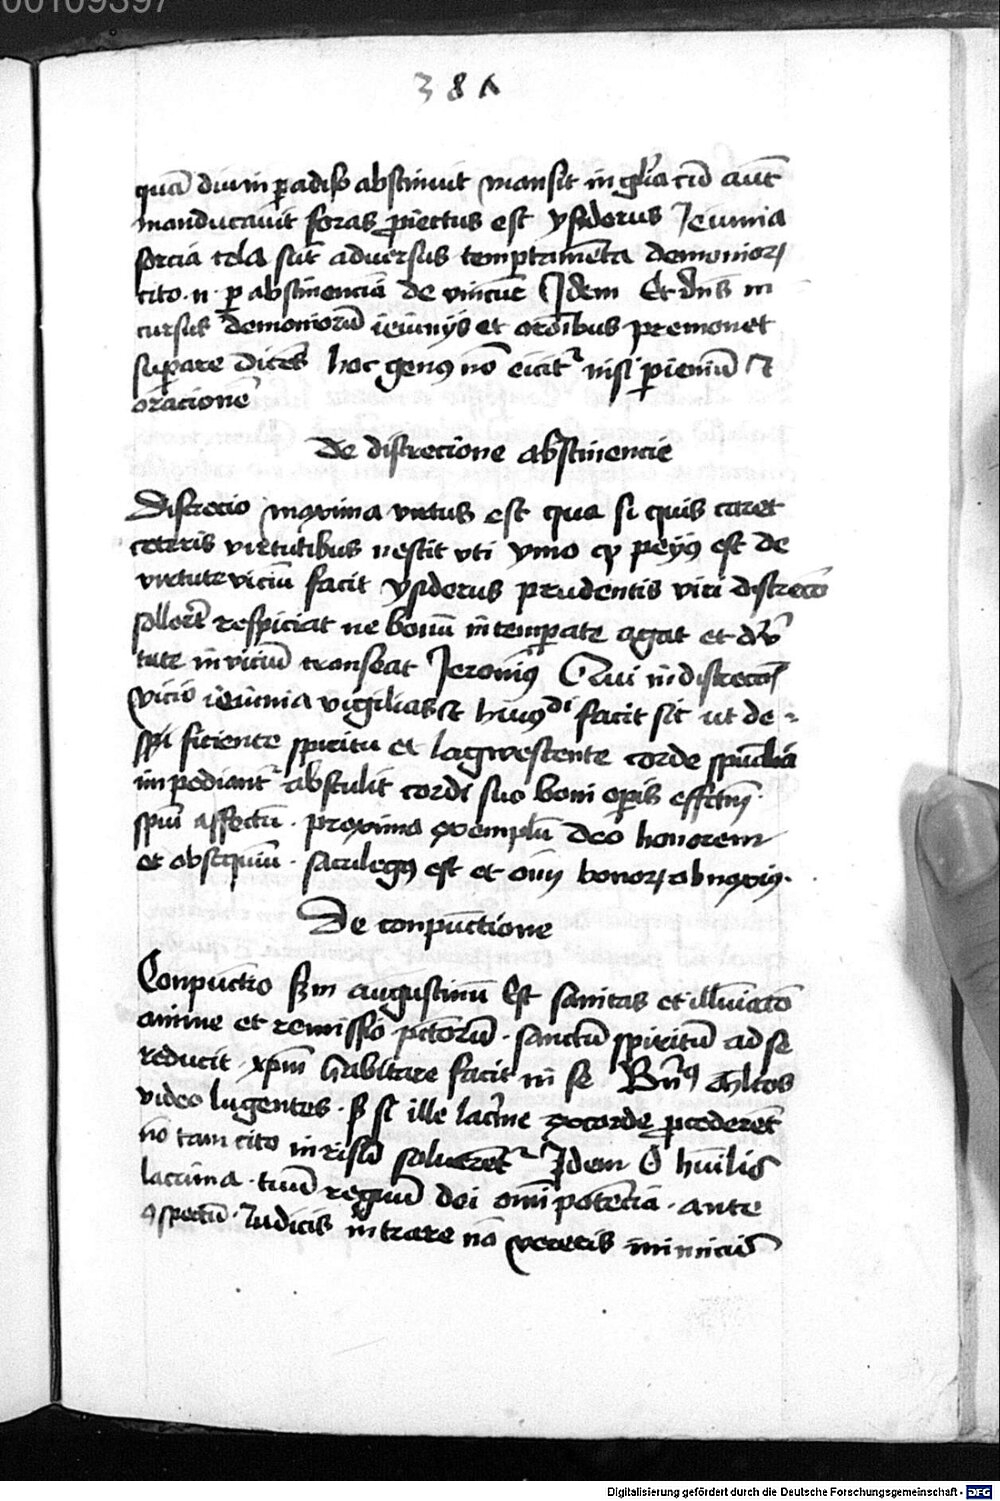 00109397
381
quā diu in ꝑadiso abstinuit mansit in gl̄ia cū aut̄
manducavit foras ꝓiectus est ysiderus Ieiunia
forcia tela sūt adversus temptamēta demonioꝝ
cito .n. ꝑ abstinenciā de vincūt Idem Et dn̄s in
cursus demoniorū ieiunijs et orōibus premonet
suꝑare dicēs hoc genꝰ nō eicit᷑ nisi ꝑ ieiuniū et
oracionē
De discrecione abstinencie
Discrecio maxima virtus est qua si quis caret
ceteris virtutibus nescit vti ymo qꝫ peyꝰ est de
virtute viciū facit ysiderus prudentis viri discrecō
respiciat ne bonū intemperate agat et de vir
tute in viciū transeat Ieronimꝰ Qui indiscrecōis
vicio ieiunia vigilias et huiusꝰdi facit sic ut de-
ficiente spiritu et lagwescente corde spūalia
impediant᷑ abstulit cordi suo boni oꝑis effectū
spūi affectū . proximo exemplū deo honorem
et obsequiū . sacrilegꝰ est et honoꝝ obnoxiꝰ.
De conpunctione
Conpunctio scdm augustinū Est sanitas et illuīacō
anime et remissio pctōrū . sanctū spiritū ad se
reducit . xp̄m habitare facit in se Bnꝰ ml̄tos
video lugentes . sꝫ si ille lacrime ex corde ꝓcederēt
nō tam cito in risū solverēt᷑ Idem O humilis
lacrima . tuū regnū dei omīpotēcia . ante
ꝯspectū . Iudicis intrare nō vereris inimicus
Digitalisierung gefördert durch die Deutsche Forschungsgemeinschaft - DFG